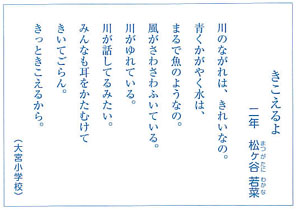 きこえるよ
二年　松ヶ谷　若菜
まつがたに　わかな
川のながれは、きれいなの。
青くかがやく水は、
まるで魚のようなの。
風がさわさわふいている。
川がゆれている。
川が話してるみたい。
みんなも耳をかたむけて
きいてごらん。
きっときこえるから。
（大宮小学校）